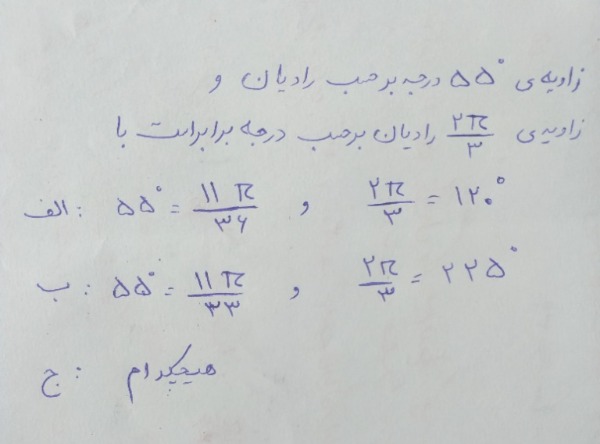 زاویه‌ی ۵۵° درجه برحسب رادیان و
زاویه‌ی ۲π/۳ رادیان برحسب درجه برابر است با
الف: ۵۵° = ۱۱π/۳۶ , ۲π/۳ = ۱۲۰°
ب: ۵۵° = ۱۱π/۳۳ , ۲π/۳ = ۲۲۵°
ج: هیچکدام